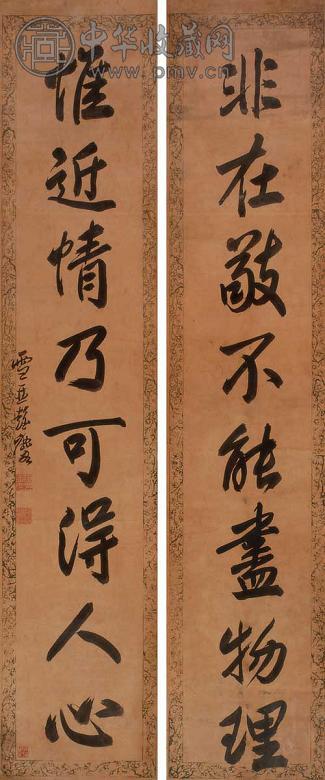 非在敬不能尽物理
惟近情乃可得人心
中华收藏网
www.pmv.cn